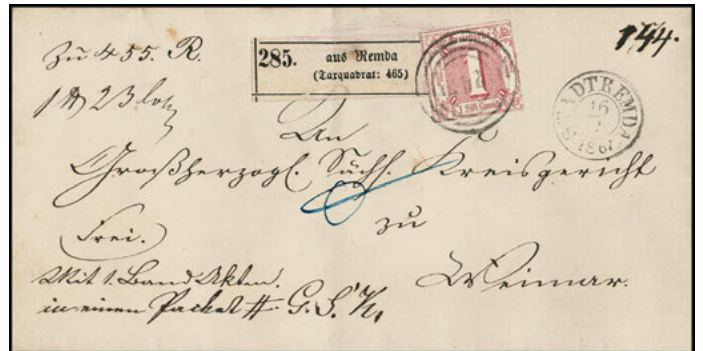 Zu 455. R.
1 ℔ 23 loth
285. aus Remda
(Tarquadrat: 465)
1
1 Silb. Grosch.
144.
STADTREMDA
16
7
186
An
Großherzogl. Sächs. Kreisgericht
zu
Weimar.
Frei.
Mit 1. Band Akten.
in einen Packet #. G. S. K.